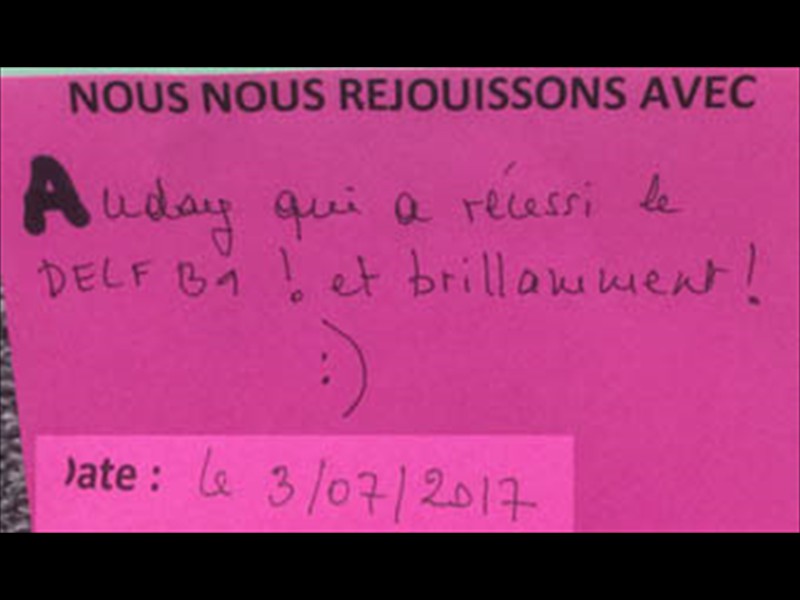 NOUS NOUS REJOUISSONS AVEC
Auday qui a réussi le
DELF B1 ! et brillamment !
:)
Date : le 3/07/2017